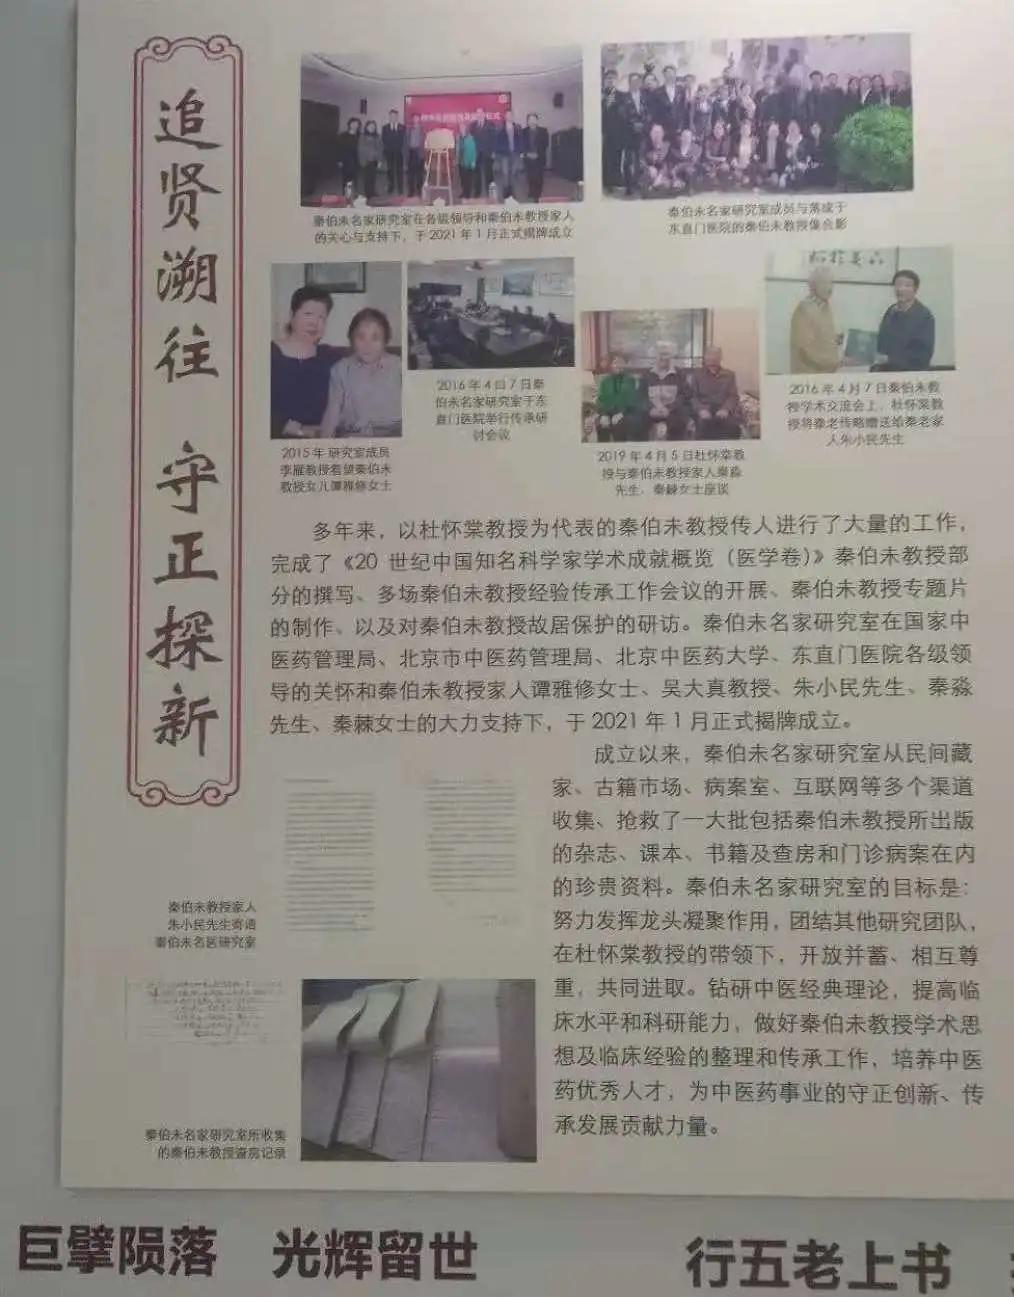 追贤溯往 守正探新
秦伯未名家研究室在各级领导和秦伯未教授家人
的关心与支持下，于2021年1月正式揭牌成立
秦伯未名家研究室成员与落成于
东直门医院的秦伯未教授像合影
2015年研究室成员
李雁教授看望秦伯未
教授女儿谭雅修女士
2016年4月7日秦
伯未名家研究室于东
直门医院举行传承研
讨会议
2019年4月5日杜怀棠教
授与秦伯未教授家人秦淼
先生、秦棘女士座谈
2016年4月7日秦伯未教
授学术交流会上，杜怀棠教
授将秦老传略赠送给秦老家
人朱小民先生
多年来，以杜怀棠教授为代表的秦伯未教授传人进行了大量的工作，
完成了《20 世纪中国知名科学家学术成就概览（医学卷）》秦伯未教授部
分的撰写、多场秦伯未教授经验传承工作会议的开展、秦伯未教授专题片
的制作、以及对秦伯未教授故居保护的研访。秦伯未名家研究室在国家中
医药管理局、北京市中医药管理局、北京中医药大学、东直门医院各级领
导的关怀和秦伯未教授家人谭雅修女士、吴大真教授、朱小民先生、秦淼
先生、秦棘女士的大力支持下，于 2021 年 1 月正式揭牌成立。
成立以来，秦伯未名家研究室从民间藏
家、古籍市场、病案室、互联网等多个渠道
收集、抢救了一大批包括秦伯未教授所出版
的杂志、课本、书籍及查房和门诊病案在内
的珍贵资料。秦伯未名家研究室的目标是：
努力发挥龙头凝聚作用，团结其他研究团队，
在杜怀棠教授的带领下，开放并蓄、相互尊
重，共同进取。钻研中医经典理论，提高临
床水平和科研能力，做好秦伯未教授学术思
想及临床经验的整理和传承工作，培养中医
药优秀人才，为中医药事业的守正创新、传
承发展贡献力量。
秦伯未教授家人
朱小民先生寄语
秦伯未名医研究室
秦伯未名家研究室所收集
的秦伯未教授查房记录
巨擘陨落 光辉留世
行五老上书